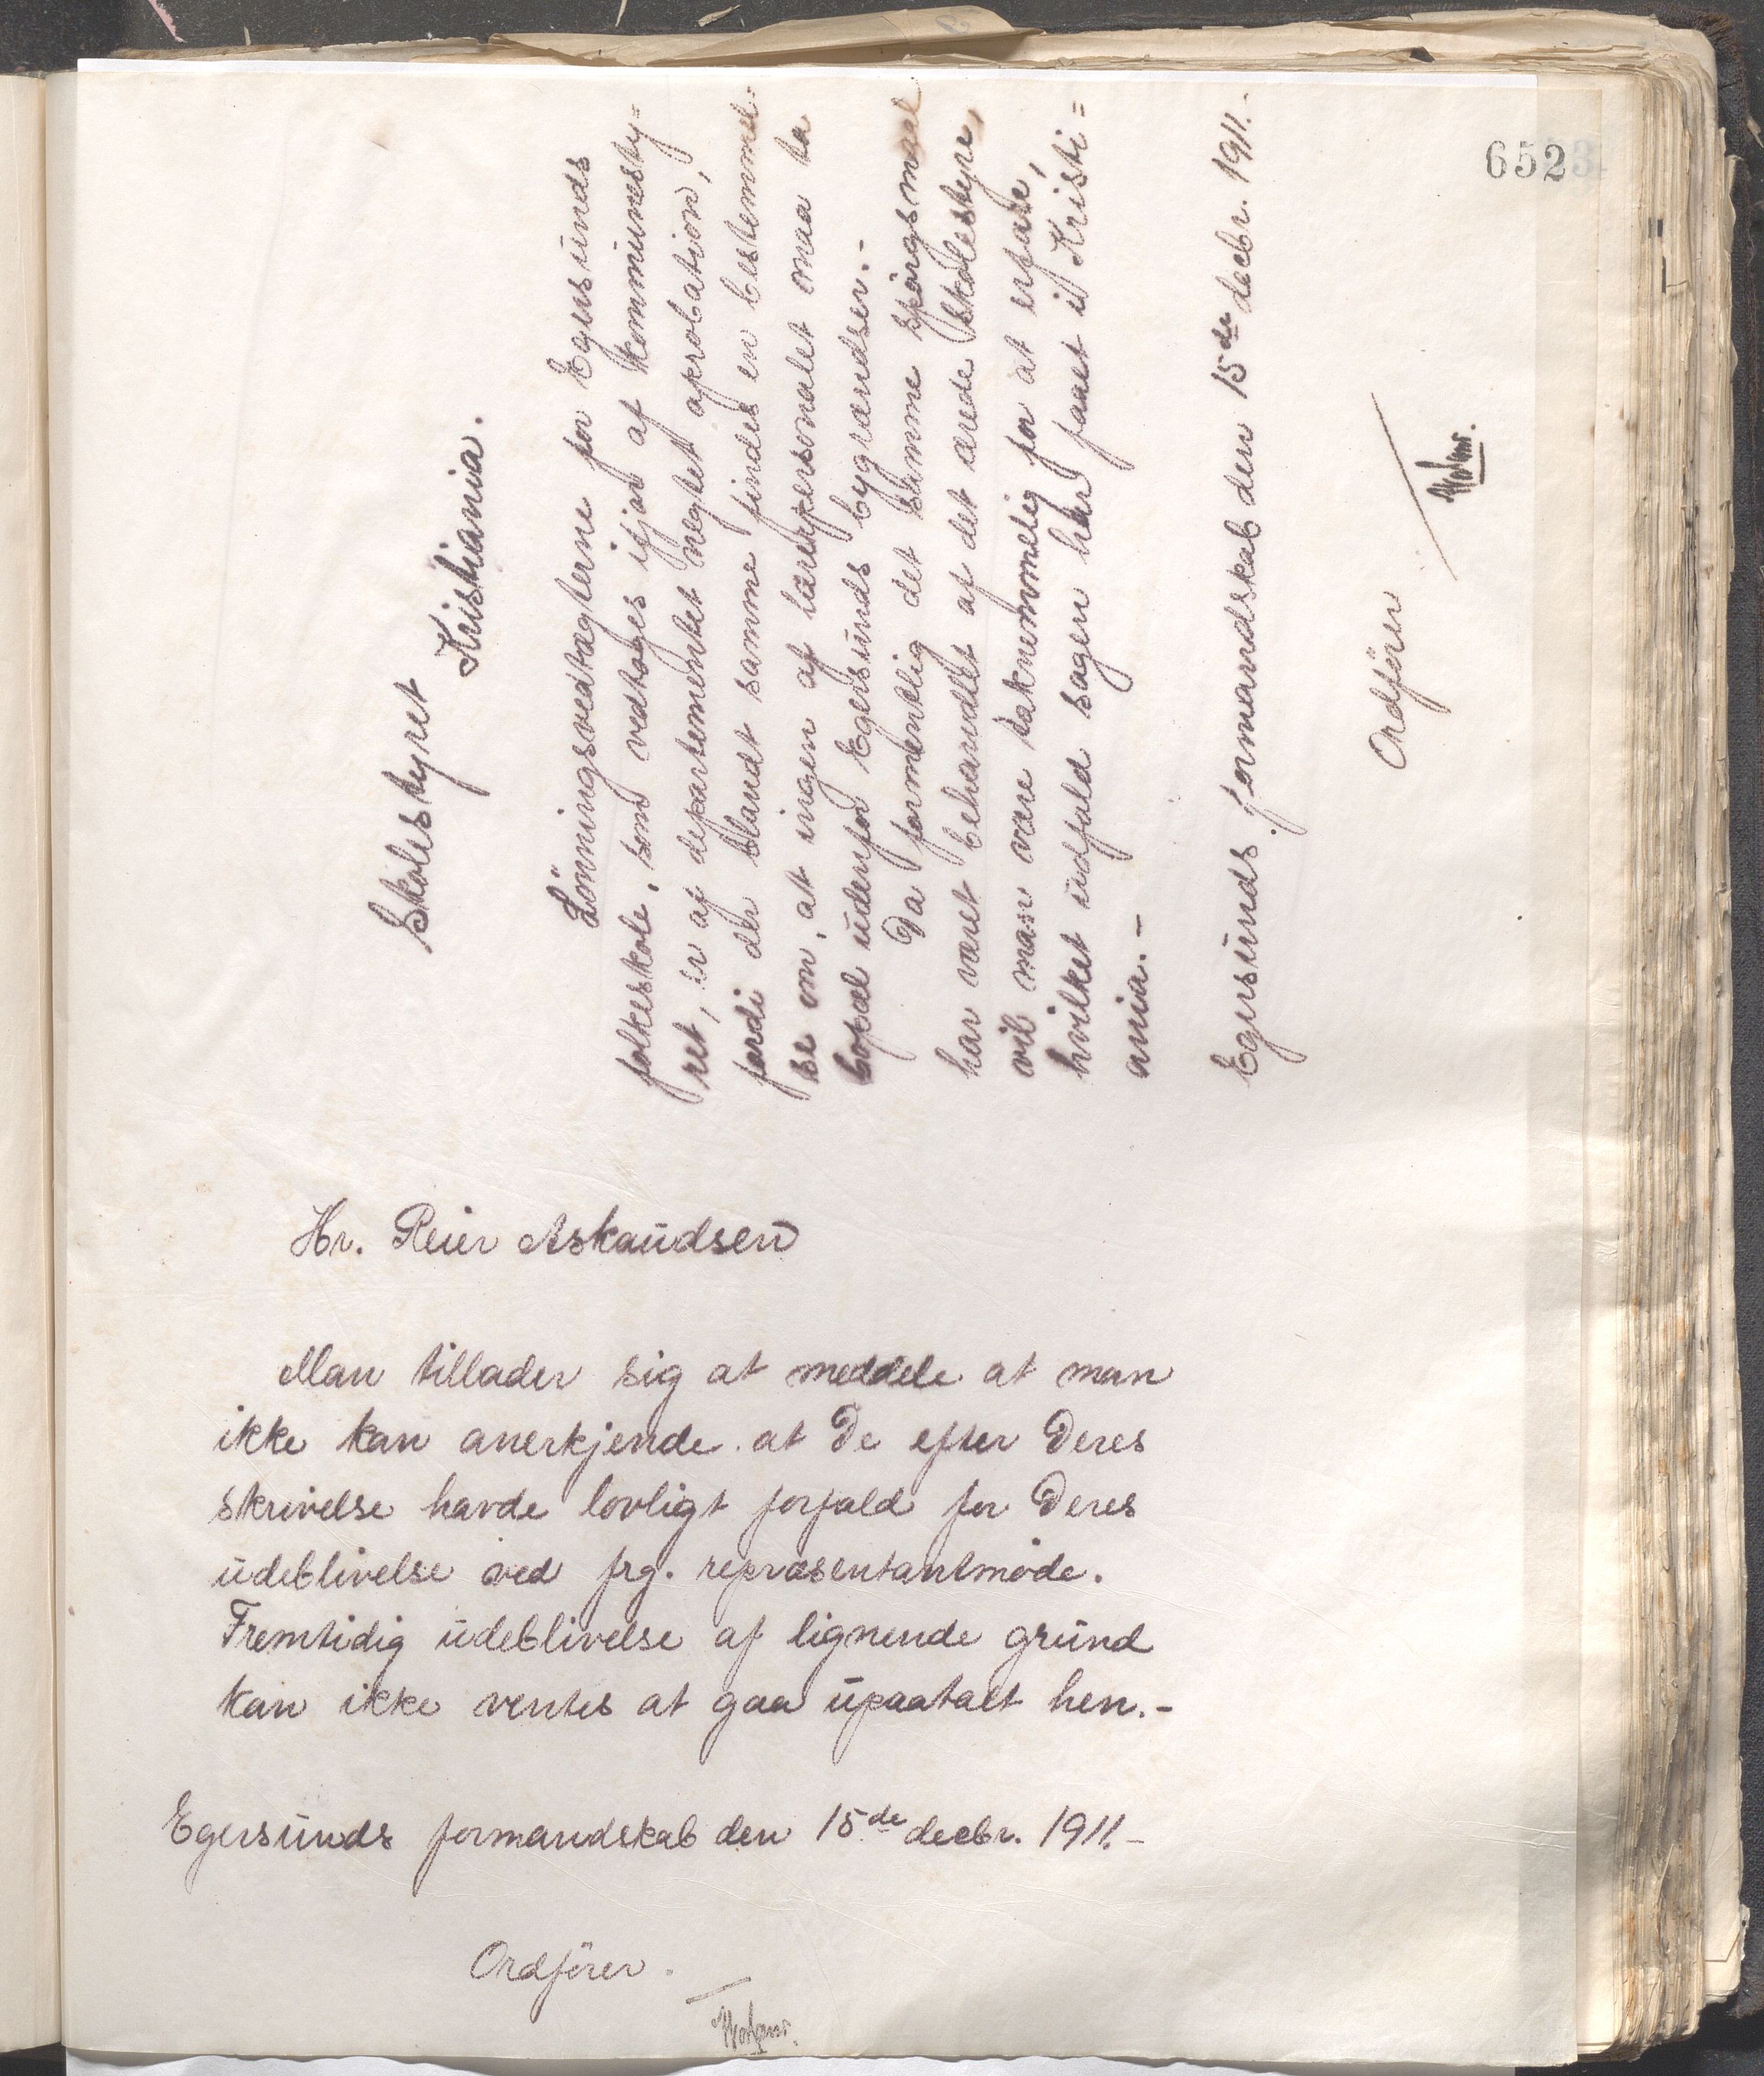 652
Skolestyret
Kristiania.
Lönningsvedtægterne for Egersunds
folkeskole, som vedtoges ifjor af kommunesty=
ret, er af departementet negtet aprobation,
fordi der blandt samme findes en bestemmel=
se om, at ingen af lærerpersonalet maa ta
bopæl udenfor Egersunds bygrændser.-
Da formentlig det samme spörgsmaal
har været behandlet af det ærede skolestyre,
vil man være taknemmelig for at erfare,
hvilket udfald sagen har faaet i Kristi=
ania.-
Egersunds formandskab den 15de decbr. 1911.-
Ordförer
Hr. Reier Askaudsen
Man tillader sig at meddele at man
ikke kan anerkjende at De efter Deres
skrivelse havde lovligt forfald for Deres
udeblivelse ved frg. repræsentantmöde.
Fremtidig udeblivelse af lignende grund
kan ikke ventes at gaa upaatalt hen.-
Egersunds formandskab den 15de decbr. 1911.-
Ordförer.